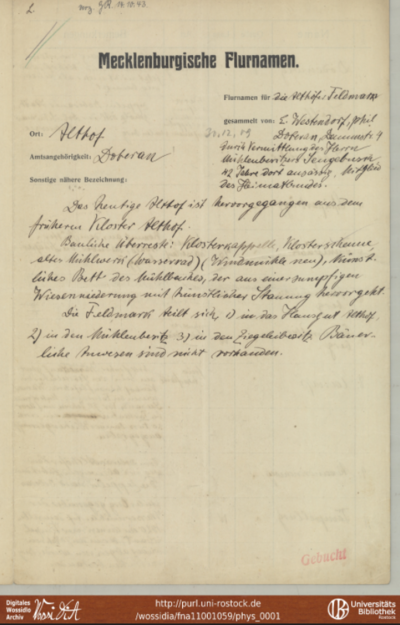 Mecklenburgische Flurnamen.
Flurnamen für die Althöfer Feldmark
gesammelt von: E. Westendorf, phil
31.12.19
Doberan, Dammstr 9
durch Vermittlung des Herrn
Mühlenbesitzer
42 Jahre dort ansässig, Mitglied
des Heimatbundes.
Ort: Althof
Amtsangehörigkeit: Doberan
Sonstige nähere Bezeichnung:
Das heutige Althof ist hervorgegangen aus dem
früheren Kloster Althof.
Bauliche Überreste: Klosterkappelle, Klosterscheune,
altes Mühlwerk (Wasserrad) (Windmühle neu), Künst-
liches Bett des Mühlbaches, der aus einer sumpfigen
Wiesenniederung mit künstlicher Stauung hervorgeht.
Die Feldmark teilt sich 1) in das Hausgut Althof,
2) in den Mühlenbesitz 3) in den Ziegeleibesitz Bäuer-
liche Anwesen sind nicht vorhanden.
Gebucht
Digitales
Wossidlo
Archiv
http://purl.uni-rostock.de
/wossidia/fna11001059/phys_0001
Universitäts
Bibliothek
Rostock